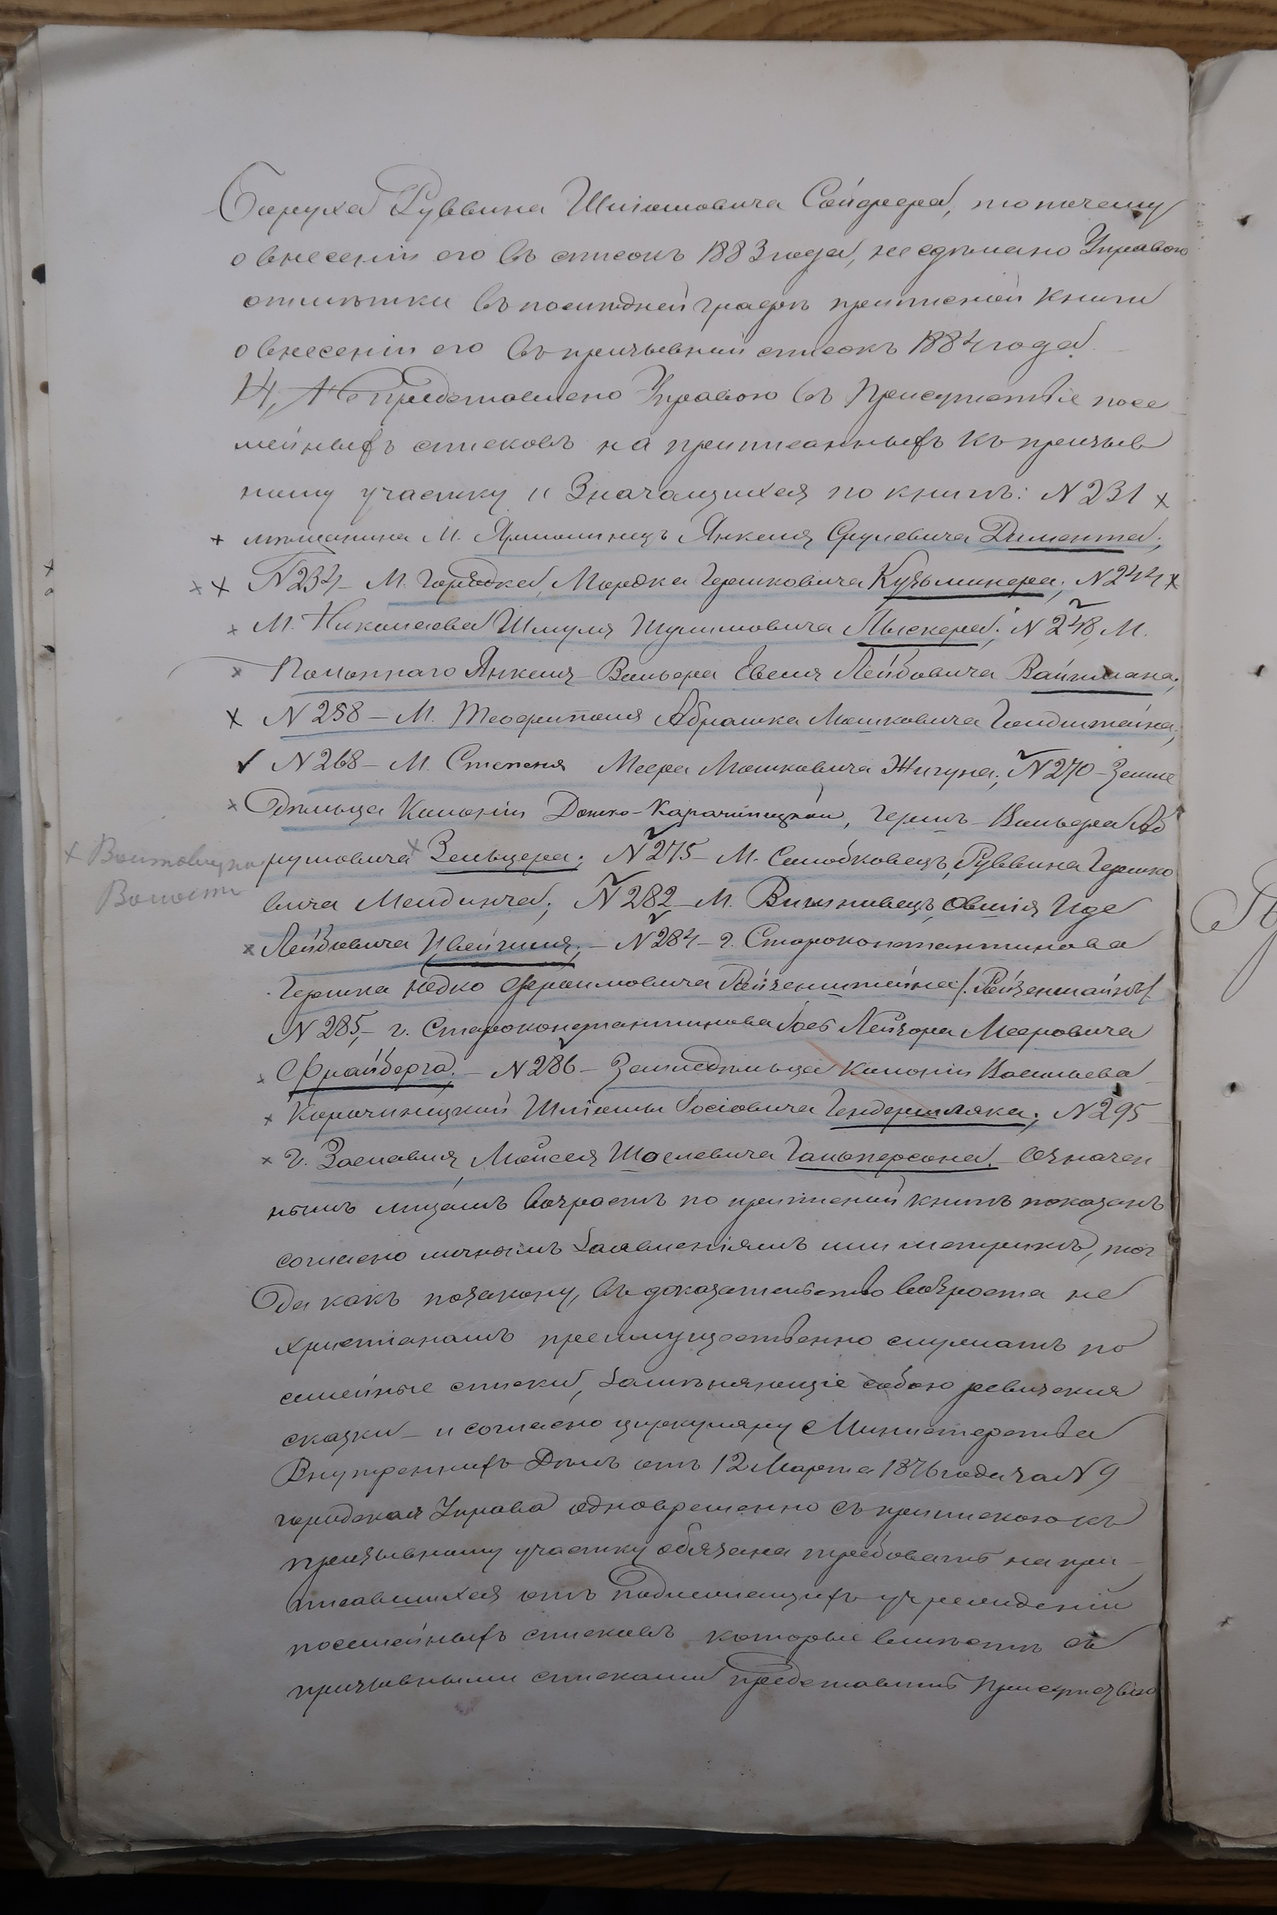 Боруха Руввина Шліомовича Сойфера, то почему
о внесеніи его въ списокъ 1883 года, не сдѣлано Управою
отмѣтки въ послѣдней графѣ приписной книги
о внесеніи его въ призывный списокъ 1884 года.
14, Не представлено Управою въ Присутствіе посе
мейныхъ списковъ на приписанныхъ къ призыв
ному участку и значащихся по книгѣ: N 231
мѣщанина М. Ярмолинецъ Янкеля Срулевича Димента;
N 234 – М. Городка, Мордка Гершковича Кузьминера; N 244
М. Николаева Шмуля Шулимовича Пыскера; N 248, М.
Полоннаго Янкеля Вольфа Евеля Лейбовича Вайнмана;
N 258 – М. Теофиполя Абрашка Мошковича Гольдштейна;
N 268 – М. Степеня Меера Мошковича Жигуна; N 270 – Земле
дѣльца Колоніи Домко-Карачіницкой, Гершъ-Вольфа Аб
румовича Зельцера; N 275 – М. Солобковецъ, Руввина Гершко
вича Мендича; N 282 – М. Вишнивецъ, Овшія Иде
Лейбовича Ивейгиля; – N 284 – г. Староконстантинова
Гершка Недко Фроимовича Ройзенштейна /: Ройзенштайнъ/
N 285, – г. Староконстантинова Іосъ Лейзора Мееровича
Фрайберга. – N 286 – Земледѣльца Колоніи Васильева
Карачиницкой Шліомы Іосіовича Гендершляка; N 295 –
г. Заславля, Мойсея Шоелевича Гальперсона. Означен
нымъ лицамъ возрастъ по приписной книгѣ показанъ
согласно личнымъ заявленіямъ или метрикѣ, тог
да какъ по закону, въ доказательство возраста не
христіанамъ преимущественно служатъ по
семейные списки, замѣняющіе собою ревизскія
сказки – и согласно циркуляру Министерства
Внутреннихъ Дѣлъ отъ 12 Марта 1876 года за N 9
городская Управа одновременно съ припискою къ
призывному участку обязана требовать на при
писавшихся отъ подлежащихъ учрежденій
посемейныхъ списковъ которые вмѣстѣ съ
призывными списками представить Присутствію
× Войтовицкой
Волости